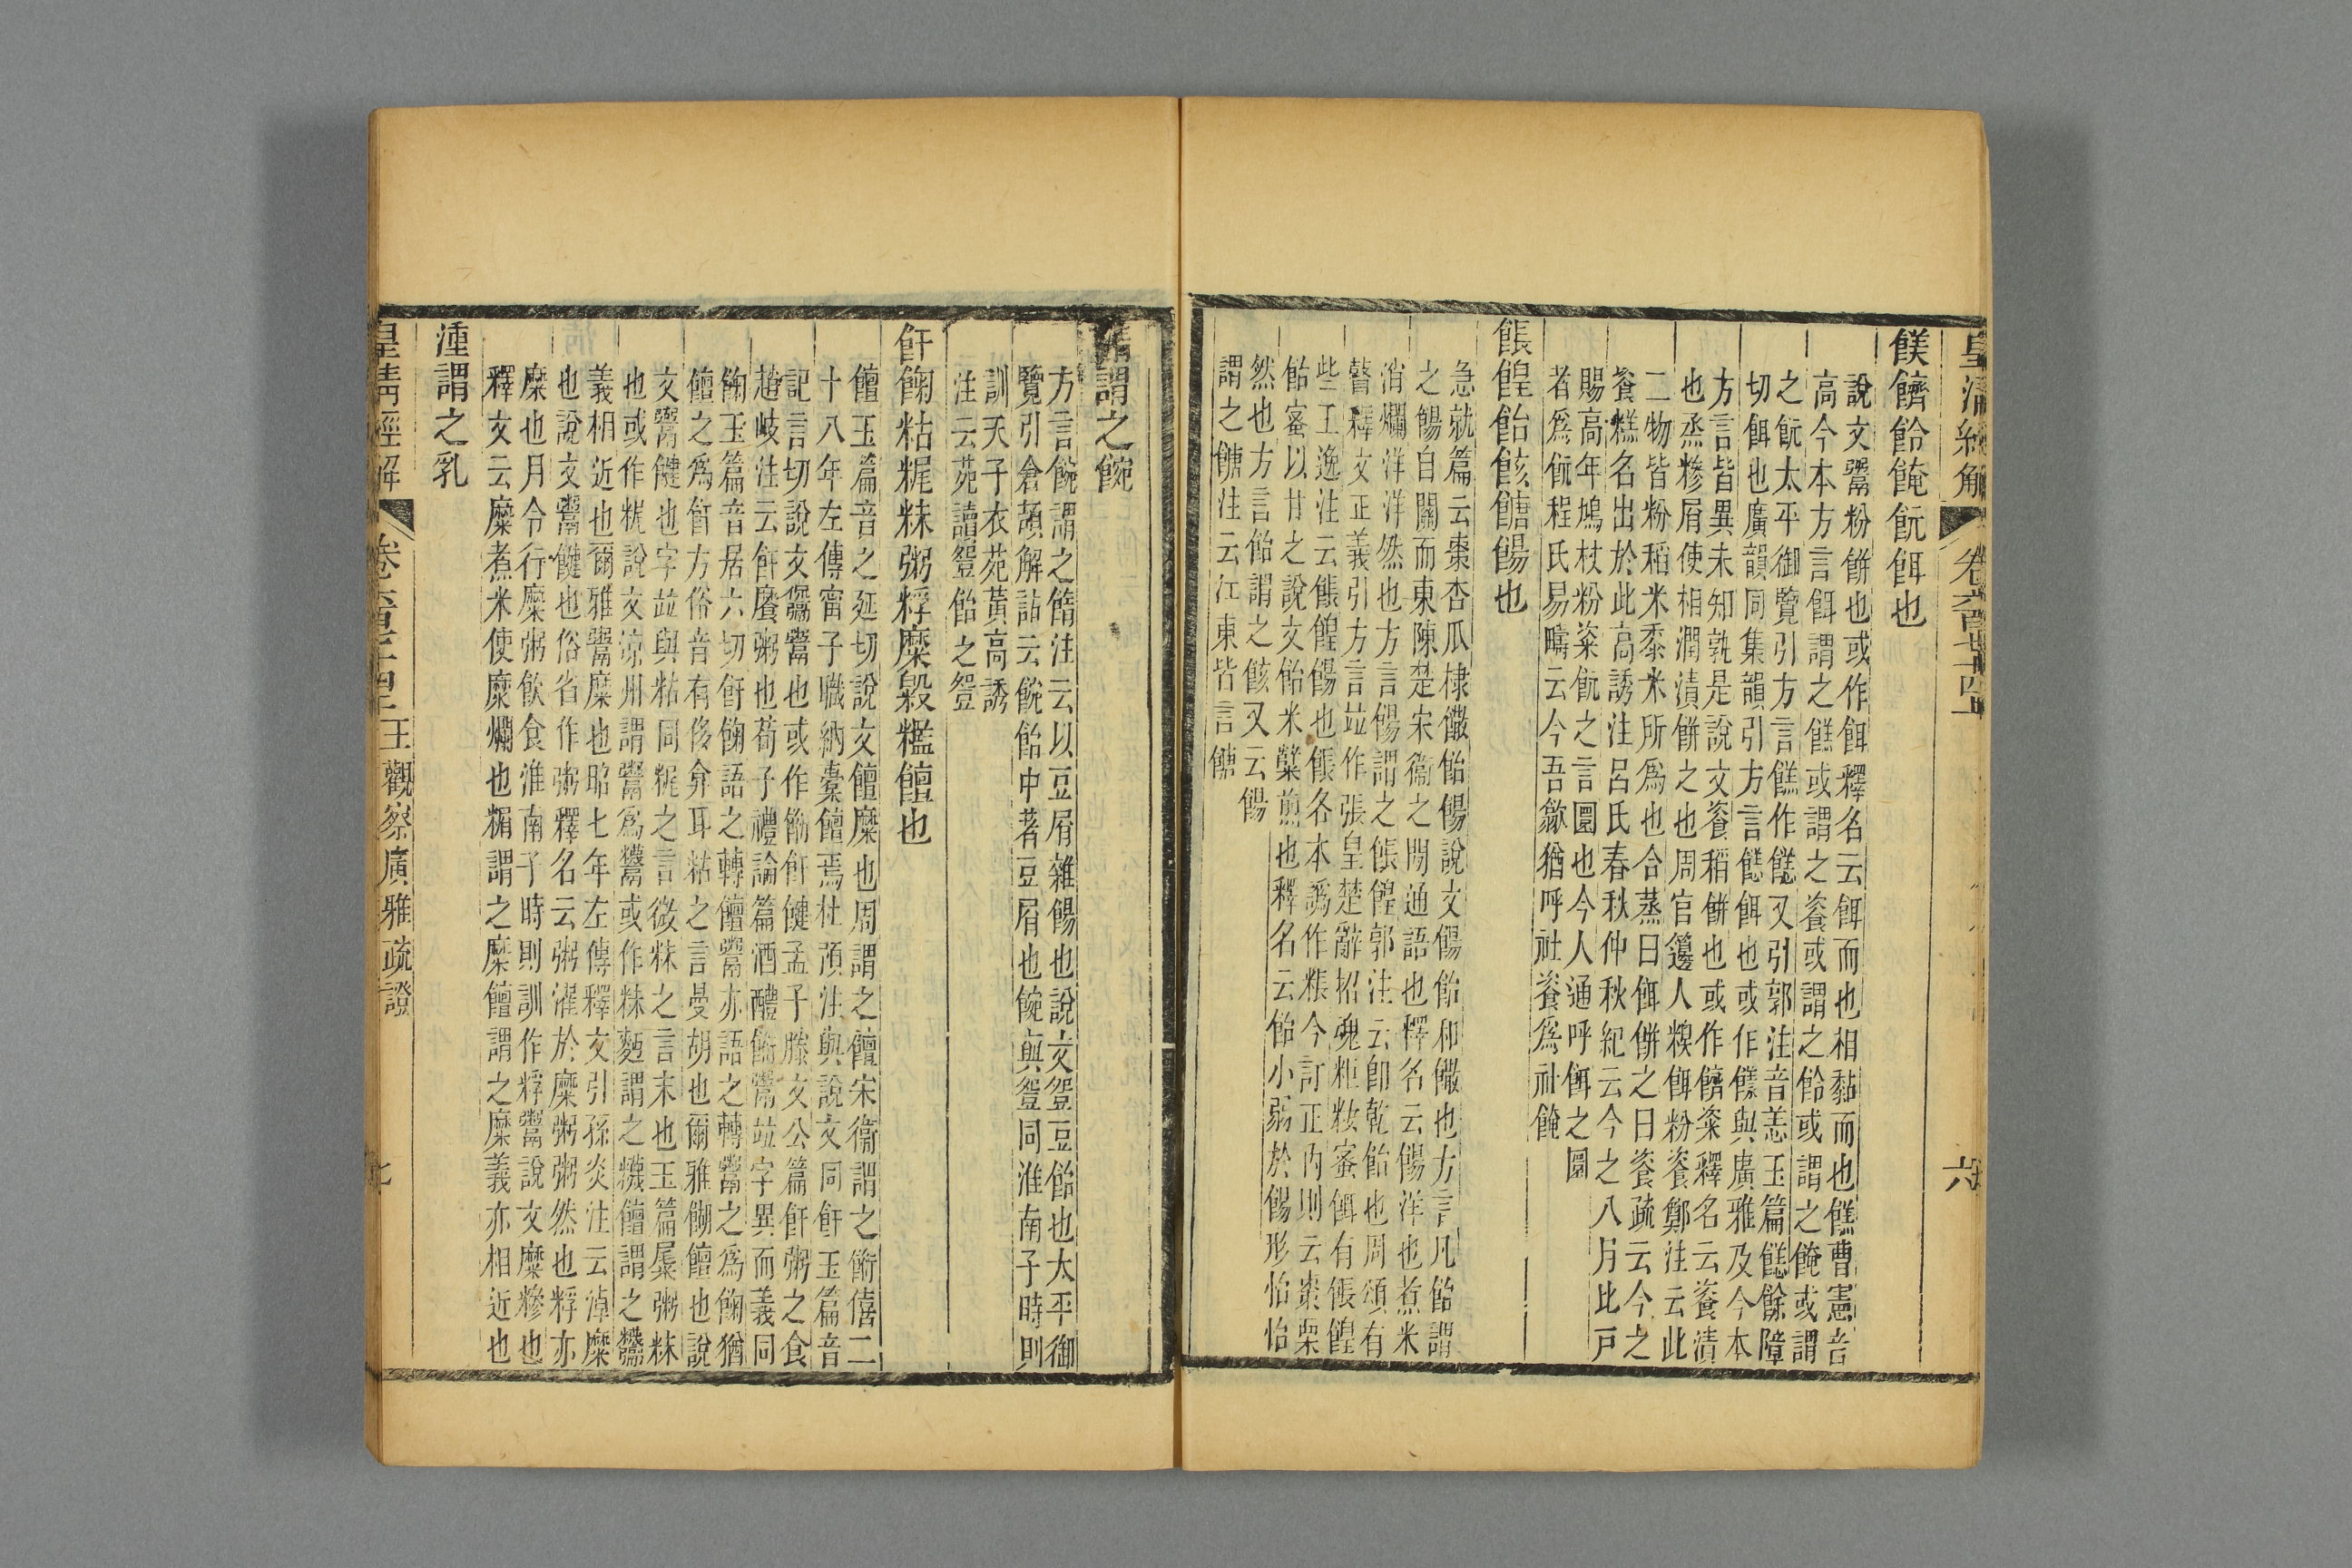 皇清經解
卷六百七十四上
六
䊩䭣䬧䭓䬧餌也
說文䰞粉餅也或作餌釋名云餌而也相黏而也䭉曹憲音
高今本方言餌謂之䭉或謂之餈或謂之䬧或謂之䭓或謂
之䬧太平御覽引方言䭉作䭉又引郭注音恙玉篇䭉餘障
切餌也廣韻同集韻引方言䭉餌也或作䭉與廣雅及今本
方言皆異未知孰是說文餈稻餅也或作䭣粢釋名云餈漬
也烝糝屑使相潤漬餅之也周官籩人糗餌粉餈鄭注云此
二物皆粉稻米黍米所爲也合蒸曰餌餅之曰餈疏云今之
餈糕名出於此高誘注呂氏春秋仲秋紀云今之八月比戸
賜高年鳩杖粉粢䬧之言圜也今人通呼餌之圜
者爲䬧程氏易疇云今吾歙猶呼社餈爲社䭓
餦餭飴䬵餹餳也
急就篇云棗杏瓜棣饊飴餳說文餳飴和饊也方言凡飴謂
之餳自關而東陳楚宋衞之閒通語也釋名云餳洋也煮米
消爛洋洋然也方言餳謂之餦餭郭注云卽乾飴也周頌有
瞽釋文正義引方言竝作張皇楚辭招魂粔籹蜜餌有餦餭
些王逸注云餦餭餳也餦各本譌作粻今訂正內則云棗栗
飴蜜以甘之說文飴米糵煎也釋名云飴小弱於餳形怡怡
然也方言飴謂之䬵又云餳
謂之餹注云江東皆言餹
謂之䬼
方言䬼謂之䭆注云以豆屑雜餳也說文䬼豆飴也太平御
覽引倉頡解詁云䬼飴中著豆屑也䬼與䬼同淮南子時則
訓天子衣苑黃高誘
注云苑讀䬼飴之䬼
飦䬰粘䊆粖粥粰糜䊪糮饘也
饘玉篇音之延切說文饘糜也周謂之饘宋衞謂之䬫僖二
十八年左傳甯子職納橐饘焉杜預注與說文同飦玉篇音
記言切說文鬻也或作飦健孟子滕文公篇飦粥之食
趙岐注云飦糜粥也荀子禮論篇酒醴䬫鬻竝字異而義同
䬰玉篇音居六切飦䬰語之轉饘鬻亦語之轉鬻之爲䬰猶
饘之爲飦方俗音有侈弇耳粘之言曼胡也爾雅餬饘也說
文鬻健也字竝與粘同䊆之言微粖之言末也玉篇䊳粥粖
也或作䊆說文涼州謂鬻爲䊳或作粖麪謂之䊳饘謂之䊳
義相近也爾雅鬻糜也昭七年左傳釋文引孫炎注云淖糜
也說文鬻健也俗省作粥釋名云粥濯於糜粥粥然也粰亦
糜也月令行糜粥飲食淮南子時則訓作粰鬻說文糜糝也
釋文云糜煮米使糜爛也糒謂之糜饘謂之糜義亦相近也
湩謂之乳
皇清經解
卷六百七十四上王觀察廣雅疏證
七